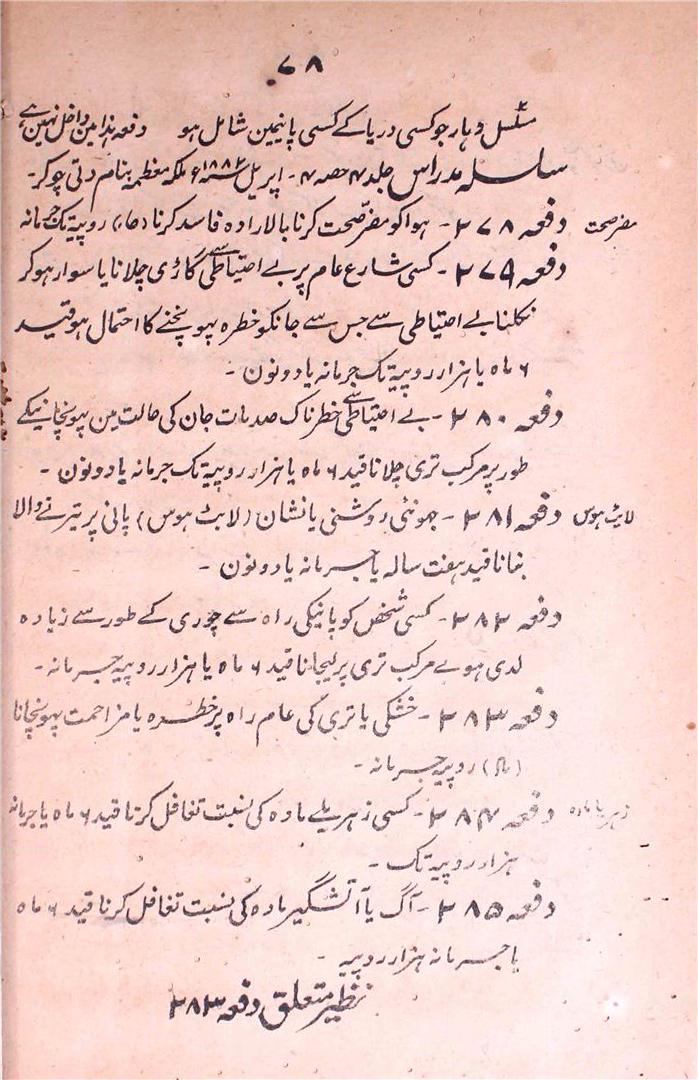 ۷۸
مسلسل دہار جو کسی دریا کے کسی پانیمین شامل ہو دفعہ ہذا مین داخل نہین ہے
سلسلہ مدراس جلد ۴ حصہ ۴ - اپریل ۱۸۸۲ء ملکہ معظمہ بنام دتی چوکر -
مضر صحت دفعہ ۲۷۸ - ہوا کو مضر صحت کرنا بالارادہ فاسد کرنا روپیہ تک جرمانہ
دفعہ ۲۷۹ - کسی شارع عام پر بے احتیاطی سے گاڑی چلانا یا سوار ہو کر
نکلنا بے احتیاطی سے جس سے جانکو خطرہ پہونچنے کا احتمال ہو قید
۶ ماہ یا ہزار روپیہ تک جرمانہ یا دونون -
دفعہ ۲۸۰ - بے احتیاطی سے خطرناک صدمات جان کی حالت مین پہونچانیکے
طور پر مرکب تری چلانا قید ۶ ماہ یا ہزار روپیہ تک جرمانہ یا دونون -
لایٹ ہوس دفعہ ۲۸۱ - جھوٹی روشنی یا نشان (لایٹ ہوس) پانی پر تیرنے والا
بنانا قید ہفت سالہ یا جرمانہ یا دونون -
دفعہ ۲۸۲ - کسی شخص کو پانیکی راہ سے چوری کے طور سے زیادہ
لدی ہوے مرکب تری پر لیجانا قید ۶ ماہ یا ہزار روپیہ جرمانہ -
دفعہ ۲۸۳ - خشکی یا تری کی عام راہ پر خطرہ یا مزاحمت پہونچانا
روپیہ جرمانہ -
زہریلا مادہ دفعہ ۲۸۴ - کسی زہریلے مادہ کی نسبت تغافل کرنا قید ۶ ماہ یا جرمانہ
ہزار روپیہ تک -
دفعہ ۲۸۵ - آگ یا آتشگیر مادہ کی نسبت تغافل کرنا قید ۶ ماہ
یا جرمانہ ہزار روپیہ -
نظیر متعلق دفعہ ۲۸۳